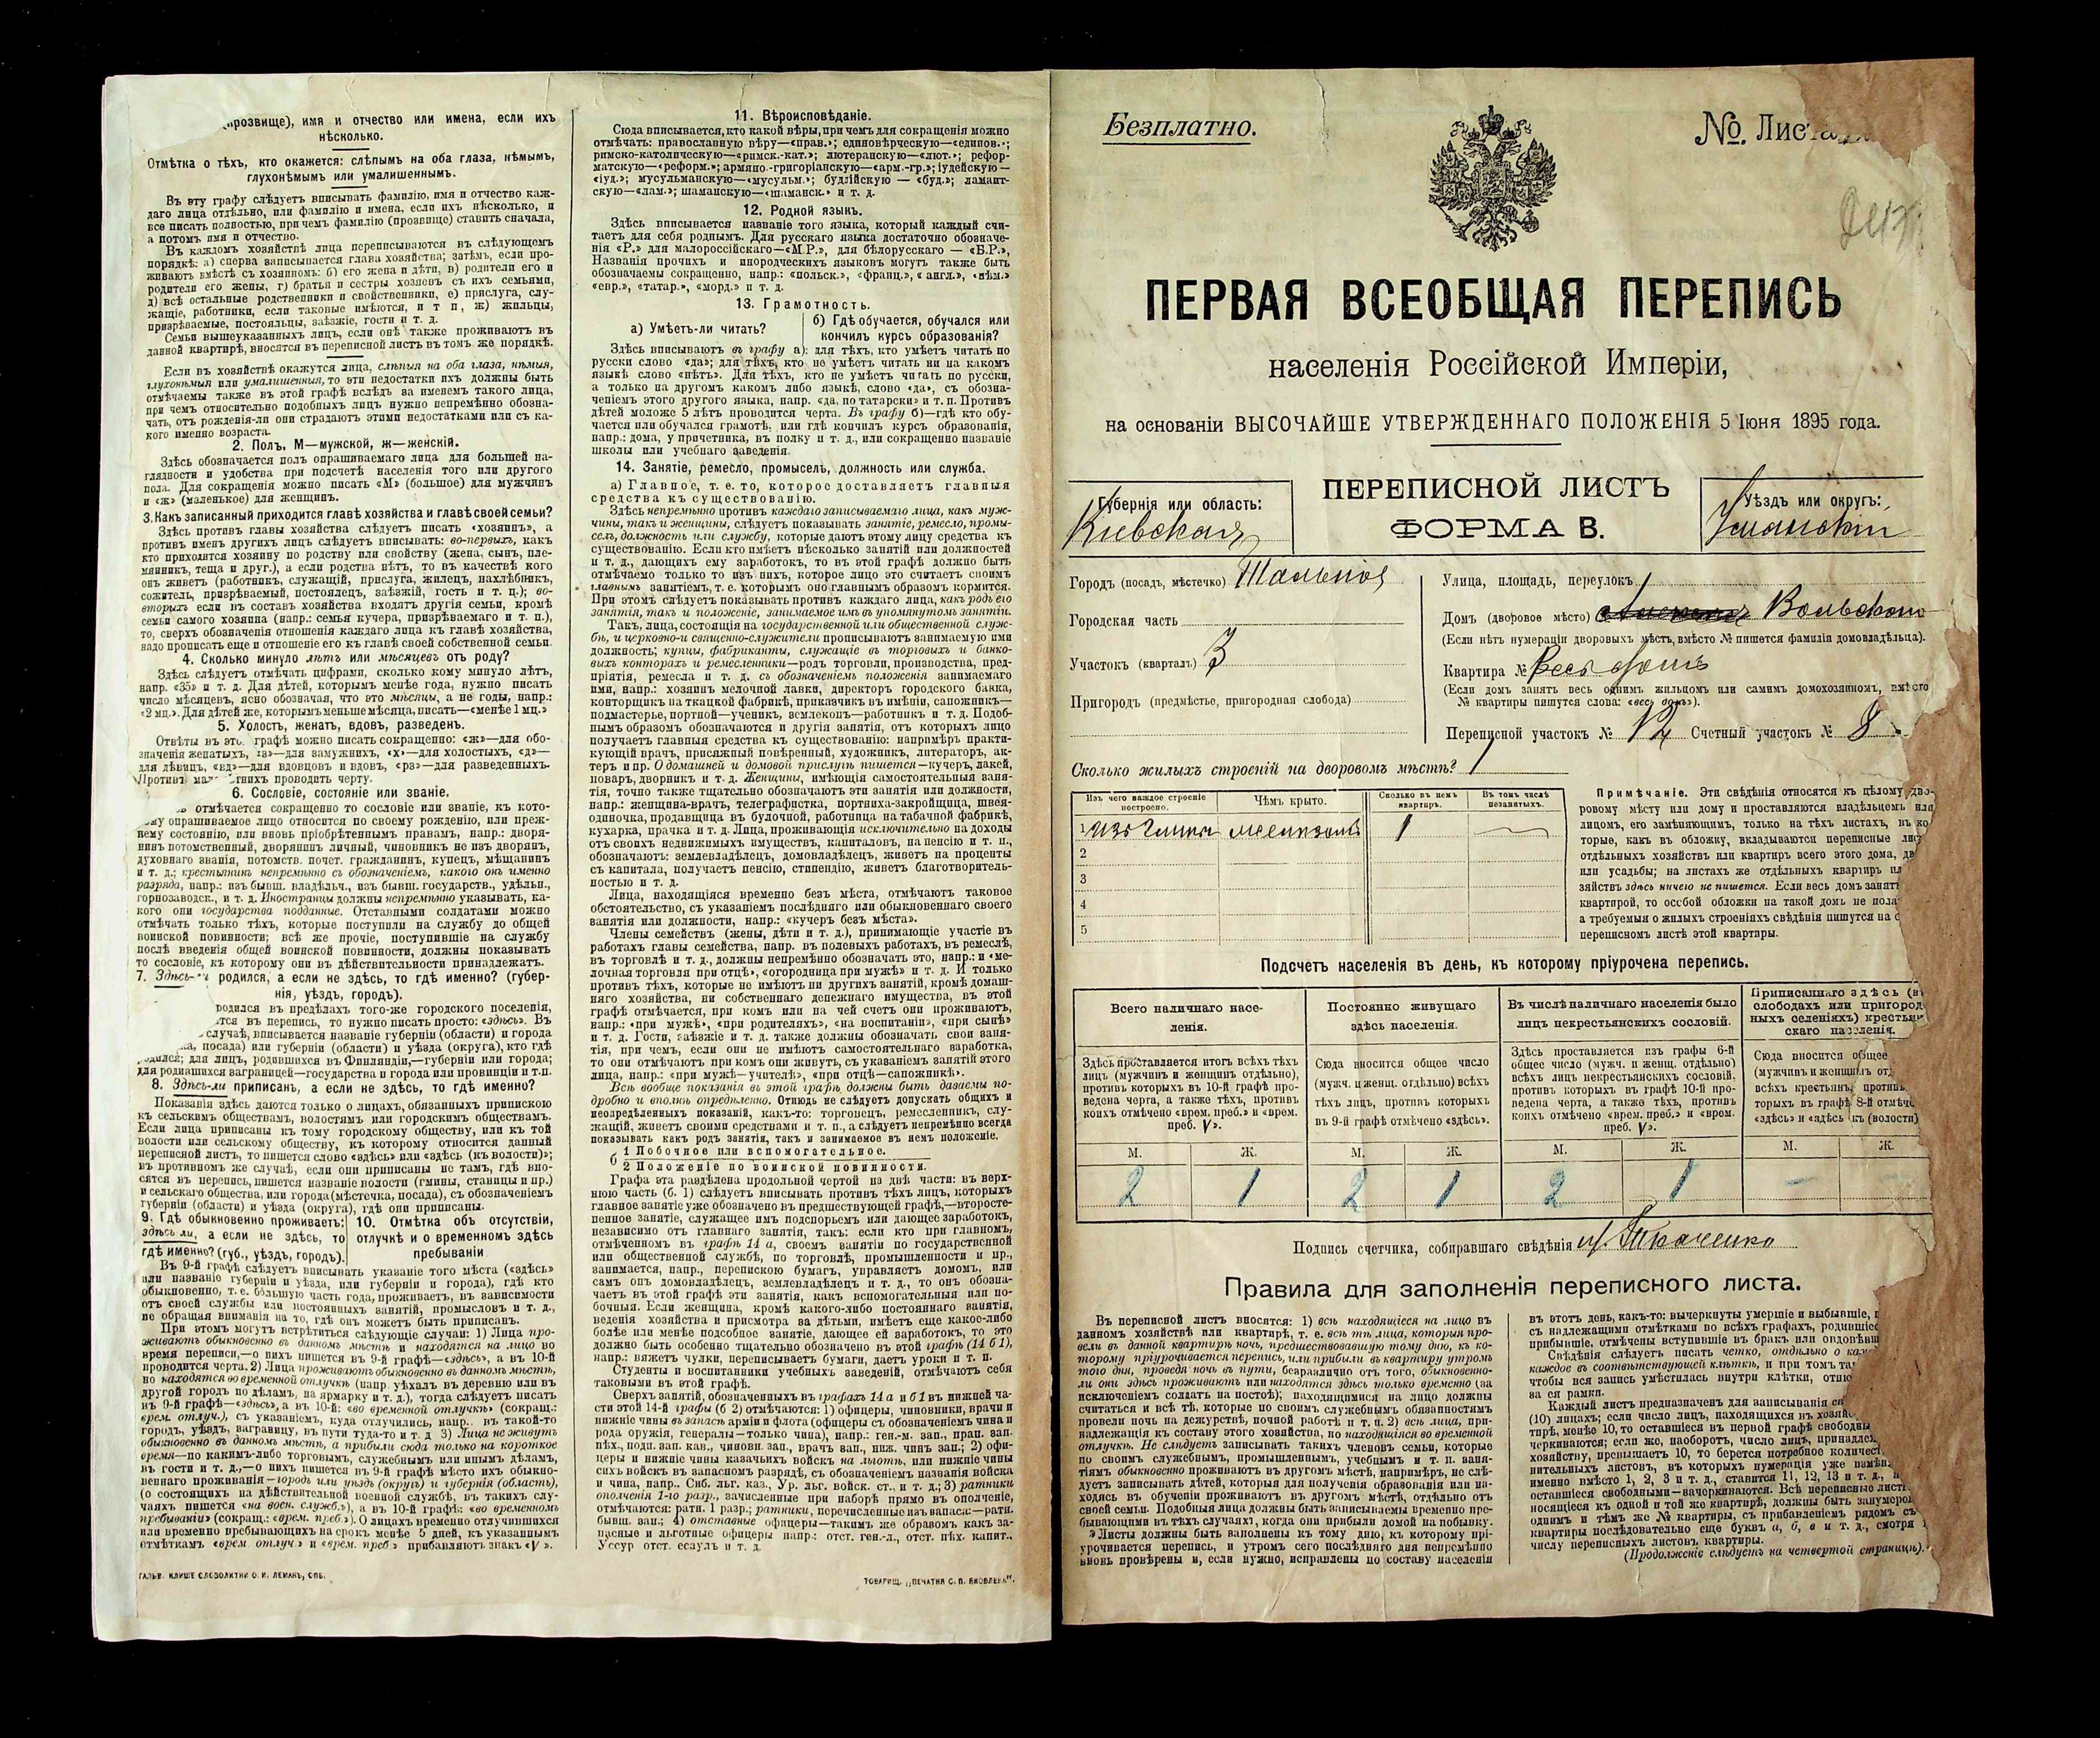 (прозвище), имя и отчество или имена, если ихъ
нѣсколько.
Отмѣтка о тѣхъ, кто окажется: слѣпымъ на оба глаза, нѣмымъ,
глухонѣмымъ или умалишеннымъ.
Въ эту графу слѣдуетъ вписывать фамилію, имя и отчество каж-
даго лица отдѣльно, или фамилію и имена, если ихъ нѣсколько, и
все писать полностью, при чемъ фамилію (прозвище) ставить сначала,
а потомъ имя и отчество.
Въ каждомъ хозяйствѣ лица переписываются въ слѣдующемъ
порядкѣ: а) сперва записывается глава хозяйства; затѣмъ, если про-
живаютъ вмѣстѣ съ хозяиномъ: б) его жена и дѣти, в) родители его и
родители его жены, г) братья и сестры хозяевъ съ ихъ семьями,
д) всѣ остальные родственники и свойственники, е) прислуга, слу-
жащіе, работники, если таковые имѣются, и т п, ж) жильцы,
призрѣваемые, постояльцы, заѣзжіе, гости и т. д.
Семьи вышеуказанныхъ лицъ, если онѣ также проживаютъ въ
данной квартирѣ, вносятся въ переписной листъ въ томъ же порядкѣ.
Если въ хозяйствѣ окажутся лица, слѣпыя на оба глаза, нѣмыя,
глухонѣмыя или умалишенныя, то эти недостатки ихъ должны быть
отмѣчаемы также въ этой графѣ вслѣдъ за именемъ такого лица,
при чемъ относительно подобныхъ лицъ нужно непремѣнно обозна-
чать, отъ рожденія-ли они страдаютъ этими недостатками или съ ка-
кого именно возраста.
2. Полъ, М—мужской, ж—женскій.
Здѣсь обозначается полъ опрашиваемаго лица для большей на-
глядности и удобства при подсчетѣ населенія того или другого
пола. Для сокращенія можно писать «М» (большое) для мужчинъ
и «ж» (маленькое) для женщинъ.
3. Какъ записанный приходится главѣ хозяйства и главѣ своей семьи?
Здѣсь противъ главы хозяйства слѣдуетъ писать «хозяинъ», а
противъ именъ другихъ лицъ слѣдуетъ вписывать: во-первыхъ, какъ
кто приходится хозяину по родству или свойству (жена, сынъ, пле-
мянникъ, теща и друг.), а если родства нѣтъ, то въ качествѣ кого
онъ живетъ (работникъ, служащій, прислуга, жилецъ, нахлѣбникъ,
сожитель, призрѣваемый, постоялецъ, заѣзжій, гость и т. ц.); во-
вторыхъ если въ составъ хозяйства входятъ другія семьи, кромѣ
семьи самого хозяина (напр.: семья кучера, призрѣваемаго и т. п.),
то, сверхъ обозначенія отношенія каждаго лица къ главѣ хозяйства,
надо прописать еще и отношеніе его къ главѣ своей собственной семьи.
4. Сколько минуло лѣтъ или мѣсяцевъ отъ роду?
Здѣсь слѣдуетъ отмѣчать цифрами, сколько кому минуло лѣтъ,
напр. «35» и т. д. Для дѣтей, которымъ менѣе года, нужно писать
число мѣсяцевъ, ясно обозначая, что это мѣсяцы, а не годы, напр.:
«2 мц.». Для дѣтей же, которымъ меньше мѣсяца, писать—«менѣе 1 мц.»
5. Холостъ, женатъ, вдовъ, разведенъ.
Отвѣты въ это. графѣ можно писать сокращенно: «ж»—для обо-
значенія женатыхъ, «з»—для замужнихъ, «х»—для холостыхъ, «д»—
для дѣвицъ, «вд»—для вдовцовъ и вдовъ, «рз»—для разведенныхъ.
Противъ мал тнихъ проводить черту.
6. Сословіе, состояніе или званіе.
отмѣчается сокращенно то сословіе или званіе, къ кото-
му опрашиваемое лицо относится по своему рожденію, или преж-
нему состоянію, или вновь пріобрѣтеннымъ правамъ, напр.: дворя-
нинъ потомственный, дворянинъ личный, чиновникъ не изъ дворянъ,
духовнаго званія, потомств. почет. гражданинъ, купецъ, мѣщанинъ
и т. д.; крестьянинъ непремѣнно съ обозначеніемъ, какого онъ именно
разряда, напр.: изъ бывш. владѣльч., изъ бывш. государств., удѣльн.,
горнозаводск., и т. д. Иностранцы должны непремѣнно указывать, ка-
кого они государства подданные. Отставными солдатами можно
отмѣчать только тѣхъ, которые поступили на службу до общей
воинской повинности; всѣ же прочіе, поступившіе на службу
послѣ введенія общей воинской повинности, должны показывать
то сословіе, къ которому они въ дѣйствительности принадлежатъ.
7. Здѣсь- и родился, а если не здѣсь, то гдѣ именно? (губер-
нія, уѣздъ, городъ).
родился въ предѣлахъ того-же городского поселенія,
тся въ перепись, то нужно писать просто: «здѣсь». Въ
случаѣ, вписывается названіе губерніи (области) и города
посада) или губерніи (области) и уѣзда (округа), кто гдѣ
родился; для лицъ, родившихся въ Финляндіи,—губерніи или города;
для родившихся заграницей—государства и города или провинціи и т.п.
8. Здѣсь-ли приписанъ, а если не здѣсь, то гдѣ именно?
Показанія здѣсь даются только о лицахъ, обязанныхъ припискою
къ сельскимъ обществамъ, волостямъ или городскимъ обществамъ.
Если лица приписаны къ тому городскому обществу, или къ той
волости или сельскому обществу, къ которому относится данный
переписной листъ, то пишется слово «здѣсь» или «здѣсь (къ волости)»;
въ противномъ же случаѣ, если они приписаны не тамъ, гдѣ вно-
сятся въ перепись, пишется названіе волости (гмины, станицы и пр.)
и сельскаго общества, или города (мѣстечка, посада), съ обозначеніемъ
губерніи (области) и уѣзда (округа), гдѣ они приписаны.
9. Гдѣ обыкновенно проживаетъ:
здѣсь ли, а если не здѣсь, то
гдѣ именно? (губ., уѣздъ, городъ).
10. Отмѣтка объ отсутствіи,
отлучкѣ и о временномъ здѣсь
пребываніи
Въ 9-й графѣ слѣдуетъ вписывать указаніе того мѣста («здѣсь»
или названіе губерніи и уѣзда, или губерніи и города), гдѣ кто
обыкновенно, т. е. большую часть года, проживаетъ, въ зависимости
отъ своей службы или постоянныхъ занятій, промысловъ и т. д.,
не обращая вниманія на то, гдѣ онъ можетъ быть приписанъ.
При этомъ могутъ встрѣтиться слѣдующіе случаи: 1) Лица про-
живаютъ обыкновенно въ данномъ мѣстѣ и находятся на лицо во
время переписи,—о нихъ пишется въ 9-й графѣ—«здѣсь», а въ 10-й
проводится черта. 2) Лица проживаютъ обыкновенно въ данномъ мѣстѣ,
но находятся во временной отлучкѣ (напр. уѣхалъ въ деревню или въ
другой городъ по дѣламъ, на ярмарку и т. д.), тогда слѣдуетъ писать
въ 9-й графѣ—«здѣсь», а въ 10-й: «во временной отлучкѣ» (сокращ.:
врем. отлуч.), съ указаніемъ, куда отлучились, напр.. въ такой-то
городъ, уѣздъ, заграницу, въ пути туда-то и т. д 3) Лица не живутъ
обыкновенно въ данномъ мѣстѣ, а прибыли сюда только на короткое
время—по какимъ-либо торговымъ, служебнымъ или инымъ дѣламъ,
въ гости и т. д.,—о нихъ пишется въ 9-й графѣ мѣсто ихъ обыкно-
веннаго проживанія—городъ или уѣздъ (округъ) и губернія (область),
(о состоящихъ на дѣйствительной военной службѣ, въ такихъ слу-
чаяхъ пишется «на воен. служб.»), а въ 10-й графѣ: «во временномъ
пребываніи» (сокращ.: «врем. преб.»). О лицахъ временно отлучившихся
или временно пребывающихъ на срокъ менѣе 5 дней, къ указаннымъ
отмѣткамъ «врем. отлуч» и «врем. преб» прибавляютъ знакъ «V».
ГАЛЬВ. КЛИШЕ СЛОВОЛИТНИ О. И. ЛЕМАНЪ, СПБ.
11. Вѣроисповѣданіе.
Сюда вписывается, кто какой вѣры, при чемъ для сокращенія можно
отмѣчать: православную вѣру—«прав.»; единовѣрческую—«единов.»;
римско-католическую—«римск.-кат.»; лютеранскую—«лют.»; рефор-
матскую—«реформ.»; армяно.-григоріанскую—«арм.-гр.»; іудейскую—
«іуд.»; мусульманскую—«мусульм.»; буддійскую — «буд.»; ламаит-
скую—«лам.»; шаманскую—«шаманск.» и т. д.
12. Родной языкъ.
Здѣсь вписывается названіе того языка, который каждый счи-
таетъ для себя роднымъ. Для русскаго языка достаточно обозначе-
нія «Р.» для малороссійскаго—«М.Р.», для бѣлорусскаго — «Б.Р.»,
Названія прочихъ и инородческихъ языковъ могутъ также быть
обозначаемы сокращенно, напр.: «польск.», «франц.», «англ.», «нѣм.»
«евр.», «татар.», «морд.» и т. д.
13. Грамотность.
а) Умѣетъ-ли читать?
б) Гдѣ обучается, обучался или
кончилъ курсъ образованія?
Здѣсь вписываютъ въ графу а): для тѣхъ, кто умѣетъ читать по
русски слово «да»; для тѣхъ, кто не умѣетъ читать ни на какомъ
языкѣ слово «нѣтъ». Для тѣхъ, кто не умѣетъ читать по русски,
а только на другомъ какомъ либо языкѣ, слово «да», съ обозна-
ченіемъ этого другого языка, напр. «да, по татарски» и т. п. Противъ
дѣтей моложе 5 лѣтъ проводится черта. Въ графу б)—гдѣ кто обу-
чается или обучался грамотѣ, или гдѣ кончилъ курсъ образованія,
напр.: дома, у причетника, въ полку и т. д., или сокращенно названіе
школы или учебнаго заведенія.
14. Занятіе, ремесло, промыселъ, должность или служба.
а) Главное, т. е. то, которое доставляетъ главныя
средства къ существованію.
Здѣсь непремѣнно противъ каждаго записываемаго лица, какъ муж-
чины, такъ и женщины, слѣдуетъ показывать занятіе, ремесло, промы-
селъ, должность или службу, которые даютъ этому лицу средства къ
существованію. Если кто имѣетъ нѣсколько занятій или должностей
и т. д., дающихъ ему заработокъ, то въ этой графѣ должно быть
отмѣчаемо только то изъ нихъ, которое лицо это считаетъ своимъ
главнымъ занятіемъ, т. е. которымъ оно главнымъ образомъ кормится.
При этомъ слѣдуетъ показывать противъ каждаго лица, какъ родъ его
занятія, такъ и положеніе, занимаемое имъ въ упомянутомъ занятіи.
Такъ, лица, состоящія на государственной или общественной служ-
бѣ, и церковно-и священно-служители прописываютъ занимаемую ими
должность; купцы, фабриканты, служащіе въ торговыхъ и банко-
выхъ конторахъ и ремесленники—родъ торговли, производства, пред-
пріятія, ремесла и т. д. съ обозначеніемъ положенія занимаемаго
ими, напр.: хозяинъ мелочной лавки, директоръ городского банка,
конторщикъ на ткацкой фабрикѣ, приказчикъ въ имѣніи, сапожникъ—
подмастерье, портной—ученикъ, землекопъ—работникъ и т. д. Подоб-
нымъ образомъ обозначаются и другія занятія, отъ которыхъ лицо
получаетъ главныя средства къ существованію: напримѣръ практи-
кующій врачъ, присяжный повѣренный, художникъ, литераторъ, ак-
теръ и пр. О домашней и домовой прислугѣ пишется—кучеръ, лакей,
поваръ, дворникъ и т. д. Женщины, имѣющія самостоятельныя заня-
тія, точно также тщательно обозначаютъ эти занятія или должности,
напр.: женщина-врачъ, телеграфистка, портниха-закройщица, швея-
одиночка, продавщица въ булочной, работница на табачной фабрикѣ,
кухарка, прачка и т. д. Лица, проживающія исключительно на доходы
отъ своихъ недвижимыхъ имуществъ, капиталовъ, на пенсію и т. п.,
обозначаютъ: землевладѣлецъ, домовладѣлецъ, живетъ на проценты
съ капитала, получаетъ пенсію, стипендію, живетъ благотворитель-
ностью и т. д.
Лица, находящіяся временно безъ мѣста, отмѣчаютъ таковое
обстоятельство, съ указаніемъ послѣдняго или обыкновеннаго своего
занятія или должности, напр.: «кучеръ безъ мѣста».
Члены семействъ (жены, дѣти и т. д.), принимающіе участіе въ
работахъ главы семейства, напр. въ полевыхъ работахъ, въ ремеслѣ,
въ торговлѣ и т. д., должны непремѣнно обозначать это, напр.: и «ме-
лочная торговля при отцѣ», «огородница при мужѣ» и т. д. И только
противъ тѣхъ, которые не имѣютъ ни другихъ занятій, кромѣ домаш-
няго хозяйства, ни собственнаго денежнаго имущества, въ этой
графѣ отмѣчается, при комъ или на чей счетъ они проживаютъ,
напр.: «при мужѣ», «при родителяхъ», «на воспитаніи», «при сынѣ»
и т. д. Гости, заѣзжіе и т. д. также должны обозначать свои заня-
тія, при чемъ, если они не имѣютъ самостоятельнаго заработка,
то они означаютъ, при комъ они живутъ, съ указаніемъ занятій этого
лица, напр.: «при мужѣ—учителѣ», «при отцѣ—сапожникѣ».
Всѣ вообще показанія въ этой графѣ должны быть даваемы по-
дробно и вполнѣ опредѣленно. Отнюдь не слѣдуетъ допускать общихъ и
неопредѣленныхъ показаній, какъ-то: торговецъ, ремесленникъ, слу-
жащій, живетъ своими средствами и т. п., а слѣдуетъ непремѣнно всегда
показывать какъ родъ занятія, такъ и занимаемое въ немъ положеніе.
б 1 Побочное или вспомогательное.
2 Положеніе по воинской повинности.
Графа эта раздѣлена продольной чертой на двѣ части: въ верх-
нюю часть (б. 1) слѣдуетъ вписывать противъ тѣхъ лицъ, которыхъ
главное занятіе уже обозначено въ предшествующей графѣ,—второсте-
пенное занятіе, служащее имъ подспорьемъ или дающее заработокъ,
независимо отъ главнаго занятія, такъ: если кто при главномъ,
отмѣченномъ въ графѣ 14 а, своемъ занятіи по государственной
или общественной службѣ, по торговлѣ, промышленности и пр.,
занимается, напр., перепискою бумагъ, управляетъ домомъ, или
самъ онъ домовладѣлецъ, землевладѣлецъ и т. д., то онъ обозна-
чаетъ въ этой графѣ эти занятія, какъ вспомогательныя или по-
бочныя. Если женщина, кромѣ какого-либо постояннаго занятія,
веденія хозяйства и присмотра за дѣтьми, имѣетъ еще какое-либо
болѣе или менѣе подсобное занятіе, дающее ей заработокъ, то это
должно быть особенно тщательно обозначено въ этой графѣ (14 б 1),
напр.: вяжетъ чулки, переписываетъ бумаги, даетъ уроки и т. п.
Студенты и воспитанники учебныхъ заведеній, отмѣчаютъ себя
таковыми въ этой графѣ.
Сверхъ занятій, обозначенныхъ въ графахъ 14 а и б 1 въ нижней ча-
сти этой 14-й графы (б 2) отмѣчаются: 1) офицеры, чиновники, врачи и
нижніе чины въ запасѣ арміи и флота (офицеры съ обозначеніемъ чина и
рода оружія, генералы—только чина), напр.: ген-м. зап., прап. зап.
пѣх., подп. зап. кав., чиновн. зап., врачъ зап., ниж. чинъ зап.; 2) офи-
церы и нижніе чины казачьихъ войскъ на льготѣ, или нижніе чины
сихъ войскъ въ запасномъ разрядѣ, съ обозначеніемъ названія войска
и чина, напр.. Сиб. льг. каз., Ур. льг. войск. ст., и т. д.; 3) ратники
ополченія 1-го разр., зачисленные при наборѣ прямо въ ополченіе,
отмѣчаются: ратн. 1 разр.; ратники, перечисленные изъ запаса—ратн.
бывш. зап.; 4) отставные офицеры—такимъ же образомъ какъ за-
пасные и льготные офицеры напр.: отст. ген-л., отст. пѣх. капит.,
Уссур отст. есаулъ и т. д.
ТОВАРИЩ. „ПЕЧАТНЯ С. П. ЯКОВЛЕВА".
Безплатно.
№ Лис
ПЕРВАЯ ВСЕОБЩАЯ ПЕРЕПИСЬ
населенія Россійской Имперіи,
на основаніи ВЫСОЧАЙШЕ УТВЕРЖДЕННАГО ПОЛОЖЕНІЯ 5 Іюня 1895 года.
ПЕРЕПИСНОЙ ЛИСТЪ
ФОРМА В.
Губернія или область:
Кіевская
Уѣздъ или округъ:
Уманскій
Городъ (посадъ, мѣстечко) Тальное
Городская часть
Участокъ (кварталъ) 3
Пригородъ (предмѣстье, пригородная слобода)
Улица, площадь, переулокъ
Домъ (дворовое мѣсто) Вольского
(Если нѣтъ нумераціи дворовыхъ мѣстъ, вмѣсто № пишется фамилія домовладѣльца).
Квартира № Весь домъ
(Если домъ занятъ весь однимъ жильцомъ или самимъ домохозяиномъ, вмѣсто
№ квартиры пишутся слова: «весь домъ»).
Переписной участокъ № 12 Счетный участокъ № 8
Сколько жилыхъ строеній на дворовомъ мѣстѣ? 1
Изъ чего каждое строеніе построено.
Чѣмъ крыто.
Сколько въ немъ квартиръ.
Въ томъ числѣ незанятыхъ.
1 изъ глины желѣзомъ 1 —
2
3
4
5
Примѣчаніе. Эти свѣдѣнія относятся къ цѣлому дво-
ровому мѣсту или дому и проставляются владѣльцемъ или
лицомъ, его замѣняющимъ, только на тѣхъ листахъ, въ ко
торые, какъ въ обложку, вкладываются переписные лис
отдѣльныхъ хозяйствъ или квартиръ всего этого дома, дв
или усадьбы; на листахъ же отдѣльныхъ квартиръ ил
зяйствъ здѣсь ничего не пишется. Если весь домъ занятъ
квартирой, то особой обложки на такой домъ не пола
а требуемыя о жилыхъ строеніяхъ свѣдѣнія пишутся на с
переписномъ листѣ этой квартиры.
Подсчетъ населенія въ день, къ которому пріурочена перепись.
Всего наличнаго насе-
ленія.
Постоянно живущаго
здѣсь населенія.
Въ числѣ наличнаго населенія было
лицъ некрестьянскихъ сословій.
Приписаннаго здѣсь (в
слободахъ или пригород
ныхъ селеніяхъ) крестьян
скаго населенія.
Здѣсь проставляется итогъ всѣхъ тѣхъ
лицъ (мужчинъ и женщинъ отдѣльно),
противъ которыхъ въ 10-й графѣ про-
ведена черта, а также тѣхъ, противъ
коихъ отмѣчено «врем. преб.» и «врем.
преб. V».
Сюда вносится общее число
(мужч. и женщ. отдѣльно) всѣхъ
тѣхъ лицъ, противъ которыхъ
въ 9-й графѣ отмѣчено «здѣсь».
Здѣсь проставляется изъ графы 6-й
общее число (мужч. и женщ. отдѣльно)
всѣхъ лицъ некрестьянскихъ сословій,
противъ которыхъ въ графѣ 10-й про-
ведена черта, а также тѣхъ, противъ
коихъ отмѣчено «врем. преб.» и «врем.
преб. V».
Сюда вносится общее
(мужчинъ и женщинъ отд
всѣхъ крестьянъ, против
торыхъ въ графѣ 8-й отмѣче
«здѣсь» и «здѣсь (къ волости)
М. Ж. М. Ж. М. Ж. М. Ж.
2 1 2 1 2 1 —
Подпись счетчика, собиравшаго свѣдѣнія И. Ткаченко
Правила для заполненія переписного листа.
Въ переписной листъ вносятся: 1) всѣ находящіеся на лицо въ
данномъ хозяйствѣ или квартирѣ, т. е. всѣ тѣ лица, которыя про-
вели въ данной квартирѣ ночь, предшествовавшую тому дню, къ ко-
торому пріурочивается перепись, или прибыли въ квартиру утромъ
того дня, проведя ночь въ пути, безразлично отъ того, обыкновенно-
ли они здѣсь проживаютъ или находятся здѣсь только временно (за
исключеніемъ солдатъ на постоѣ); находящимися на лицо должны
считаться и всѣ тѣ, которые по своимъ служебнымъ обязанностямъ
провели ночь на дежурствѣ, ночной работѣ и т. п. 2) всѣ лица, при-
надлежащія къ составу этого хозяйства, но находящіяся во временной
отлучкѣ. Не слѣдуетъ записывать такихъ членовъ семьи, которые
по своимъ служебнымъ, промышленнымъ, учебнымъ и т. п. заня-
тіямъ обыкновенно проживаютъ въ другомъ мѣстѣ, напримѣръ, не слѣ-
дуетъ записывать дѣтей, которыя для полученія образованія или на-
ходясь въ обученіи проживаютъ въ другомъ мѣстѣ, отдѣльно отъ
своей семьи. Подобныя лица должны быть записываемы временно пре-
бывающими въ тѣхъ случаяхъ, когда они прибыли домой на побывку.
Листы должны быть заполнены къ тому дню, къ которому прі-
урочивается перепись, и утромъ сего послѣдняго дня непремѣнно
вновь провѣрены и, если нужно, исправлены по составу населенія
въ этотъ день, какъ-то: вычеркнуты умершіе и выбывшіе,
съ надлежащими отмѣтками во всѣхъ графахъ, родившіеся
прибывшіе, отмѣчены вступившіе въ бракъ или овдовѣвш
Свѣдѣнія слѣдуетъ писать четко, отдѣльно о каж
каждое въ соотвѣтствующей клѣткѣ, и при томъ та
чтобы вся запись умѣстилась внутри клѣтки,
за ея рамки.
Каждый листъ предназначенъ для записыванія
(10) лицахъ; если число лицъ, находящихся въ хозяй
тирѣ, менѣе 10, то оставшіеся въ первой графѣ свободны
черкиваются; если же, наоборотъ, число лицъ, принадлеж
хозяйству, превышаетъ 10, то берется потребное количест
нительныхъ листовъ, въ которыхъ нумерація уже измѣн
именно вмѣсто 1, 2, 3 и т. д., ставится 11, 12, 13 и т. д.,
оставшіеся свободными—зачеркиваются. Всѣ переписные лист
носящіеся къ одной и той же квартирѣ, должны быть занумеро
однимъ и тѣмъ же № квартиры, съ прибавленіемъ рядомъ съ
квартиры послѣдовательно еще буквъ а, б, в и т. д., смотря
числу переписныхъ листовъ квартиры.
(Продолженіе слѣдуетъ на четвертой страницѣ).